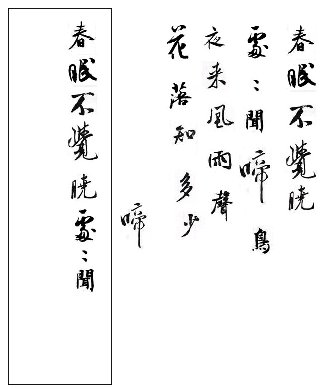 春眠不覺曉
處〻聞啼鳥
夜来風雨聲
花落知多少
啼
春眠不覺曉處〻聞